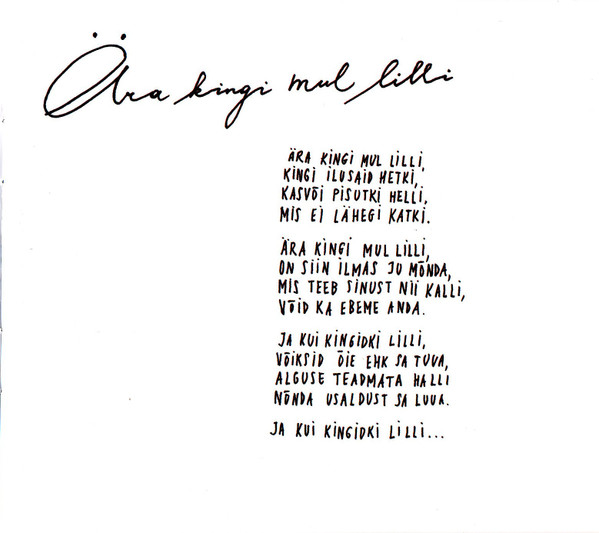 Ära kingi mul lilli
ÄRA KINGI MUL LILLI,
KINGI ILUSAID HETKI,
KASVÕI PISUTKI HELLI,
MIS EI LÄHEGI KATKI.
ÄRA KINGI MUL LILLI,
ON SIIN ILMAS JU MÕNDA,
MIS TEEB SINUST NII KALLI,
VÕID KA EBEME ANDA.
JA KUI KINGIDKI LILLI,
VÕIKSID ÕIE EHK SA TUUA,
ALGUSE TEADMATA HALLI
NÕNDA USALDUST SA LUUA.
JA KUI KINGIDKI LILLI...